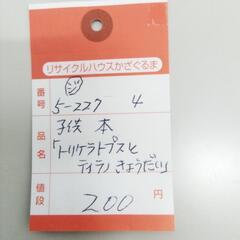 リサイクルハウスかざぐるま
番号 5-227 4
品名 子供 本
「トリケラトプスと
ティラノ きょうだい」
値段 200 円